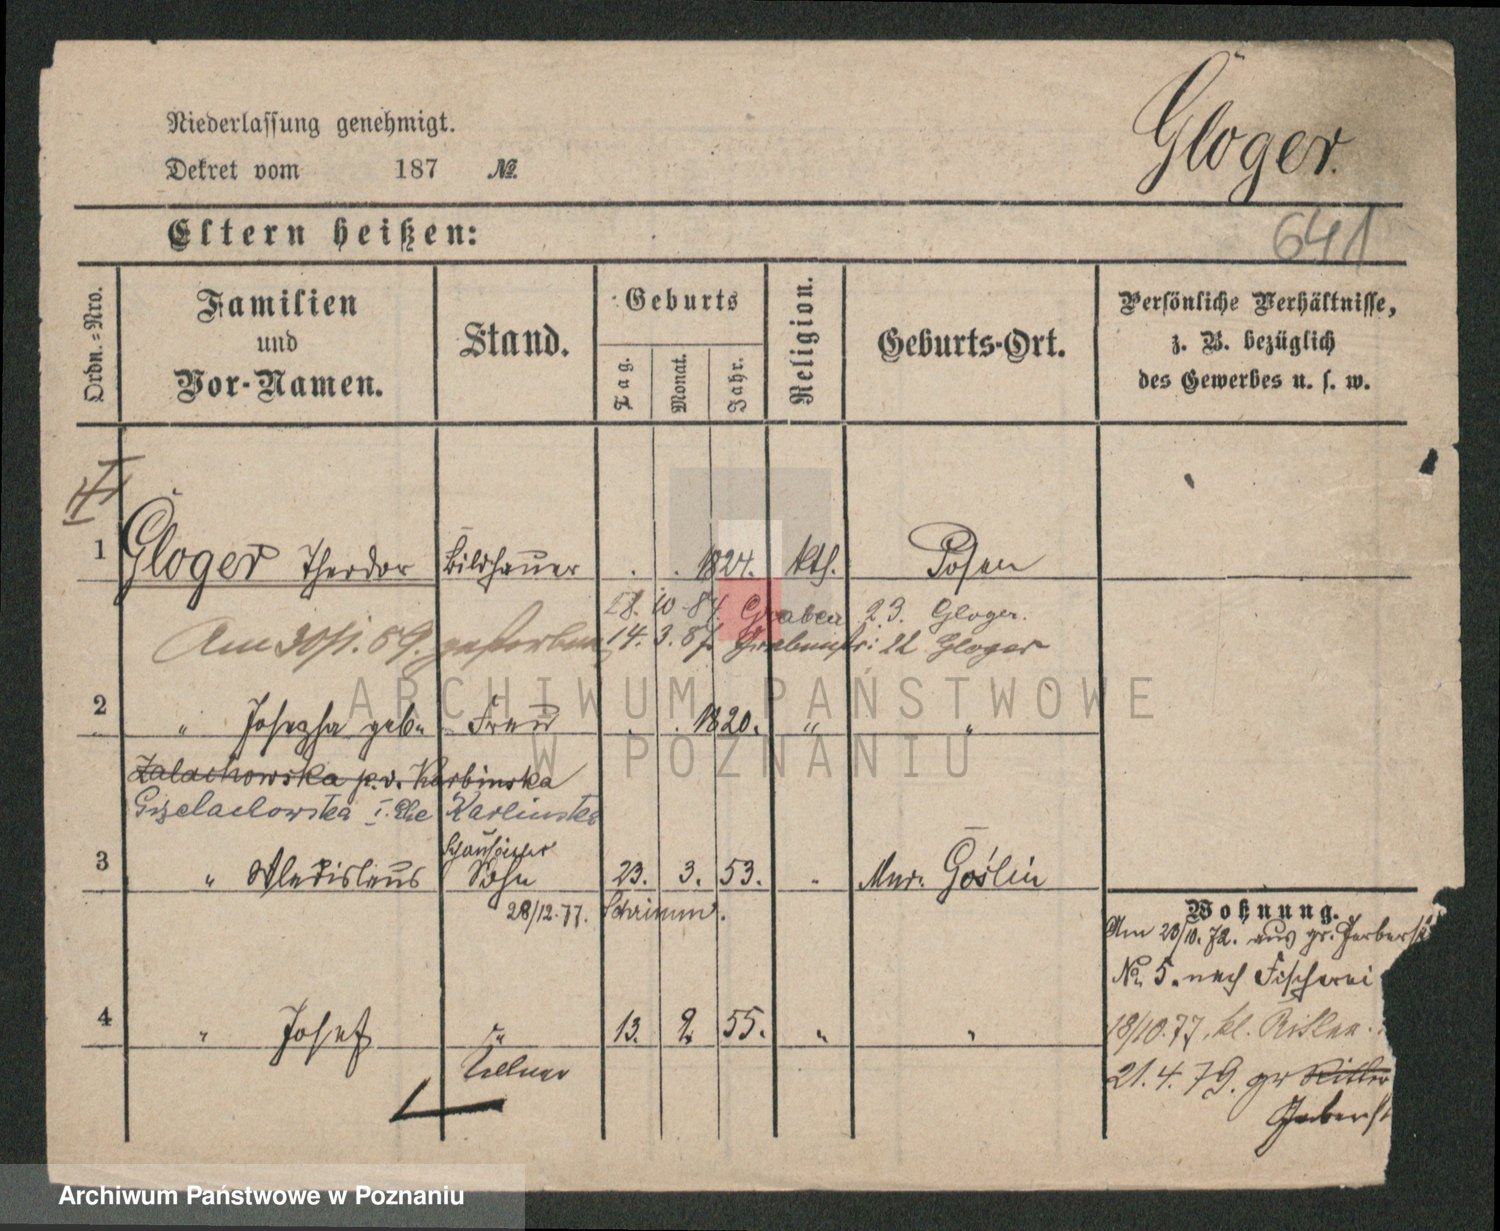 Gloger.
Niederlassung genehmigt.
Dekret vom 187 №
641
Eltern heißen:
Ordn.-Nro.
Familien und Vor-Namen.
Stand.
Geburts
Tag. Monat. Jahr.
Religion.
Geburts-Ort.
Persönliche Verhältnisse,
z. B. bezüglich
des Gewerbes u. s. w.
1 Gloger Theodor Bildhauer . . 1824. kth. Posen
28. 10 84. Graben 23. Gloger.
Am 30/1. 89. gestorben 14. 3. 87 22 Gloger
ARCHIWUM PAŃSTWOWE
W POZNANIU
2 " Josepha geb. Frau . . 1820. " "
Zalachowska p. v. Karbinska
I. Ehe Karlinska
3 " Wladislaus Sohn 23. 3. 53. " Mur. Goślin
28/12. 77. Schrimm.
4 " Josef " 13. 2. 55. " "
Kellner
Wohnung.
Am 23/10. 72. aus gr. Gerberst
№ 5. nach Fischerei
18/10. 77. kl. Ritter
21. 4. 79. gr Ritter
Gerberst
Archiwum Państwowe w Poznaniu